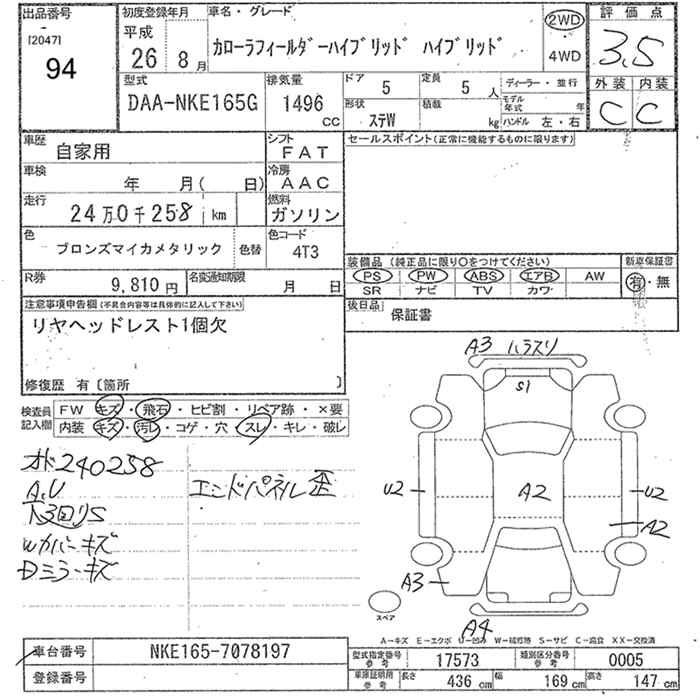 出品番号
[2047]
94
初度登録年月
平成
26 8月
車名・グレード
カローラフィールダーハイブリッド ハイブリッド
2WD
4WD
評価点
3.5
外装 内装
C C
型式
DAA-NKE165G
排気量
1496
cc
ドア
5
定員
5 人
形状
ステW
積載
kg
ディーラー・並行
モデル年式 年
ハンドル 左・右
車歴
自家用
シフト
FAT
車検
年 月( 日)
冷房
AAC
走行
24万0千258 km
燃料
ガソリン
色
ブロンズマイカメタリック
色替
色コード
4T3
R券
9,810円
名変通知期限
月 日
セールスポイント(正常に機能するものに限ります)
装備品(純正品に限り○をつけてください)
PS PW ABS エアB AW
SR ナビ TV カワ
新車保証書
有・無
後日品
保証書
注意事項申告欄(不具合内容等は具体的に記入して下さい)
リヤヘッドレスト1個欠
修復歴 有〔箇所 〕
検査員記入欄
FW キズ・飛石・ヒビ割・リペア跡・×要
内装 キズ・汚レ・コゲ・穴・スレ・キレ・破レ
オド240258
A,U
エンドパネル歪
Wカバーキズ
Dミラーキズ
A3
S1
U2
A2
U2
A2
A3
A4
スペア
A-キズ E-エクボ U-凹み W-補修跡 S-サビ C-腐食 XX-交換済
車台番号
NKE165-7078197
登録番号
型式指定番号 参考
17573
類別区分番号 参考
0005
車庫証明用 参考
長さ 436 cm
幅 169 cm
高さ 147 cm